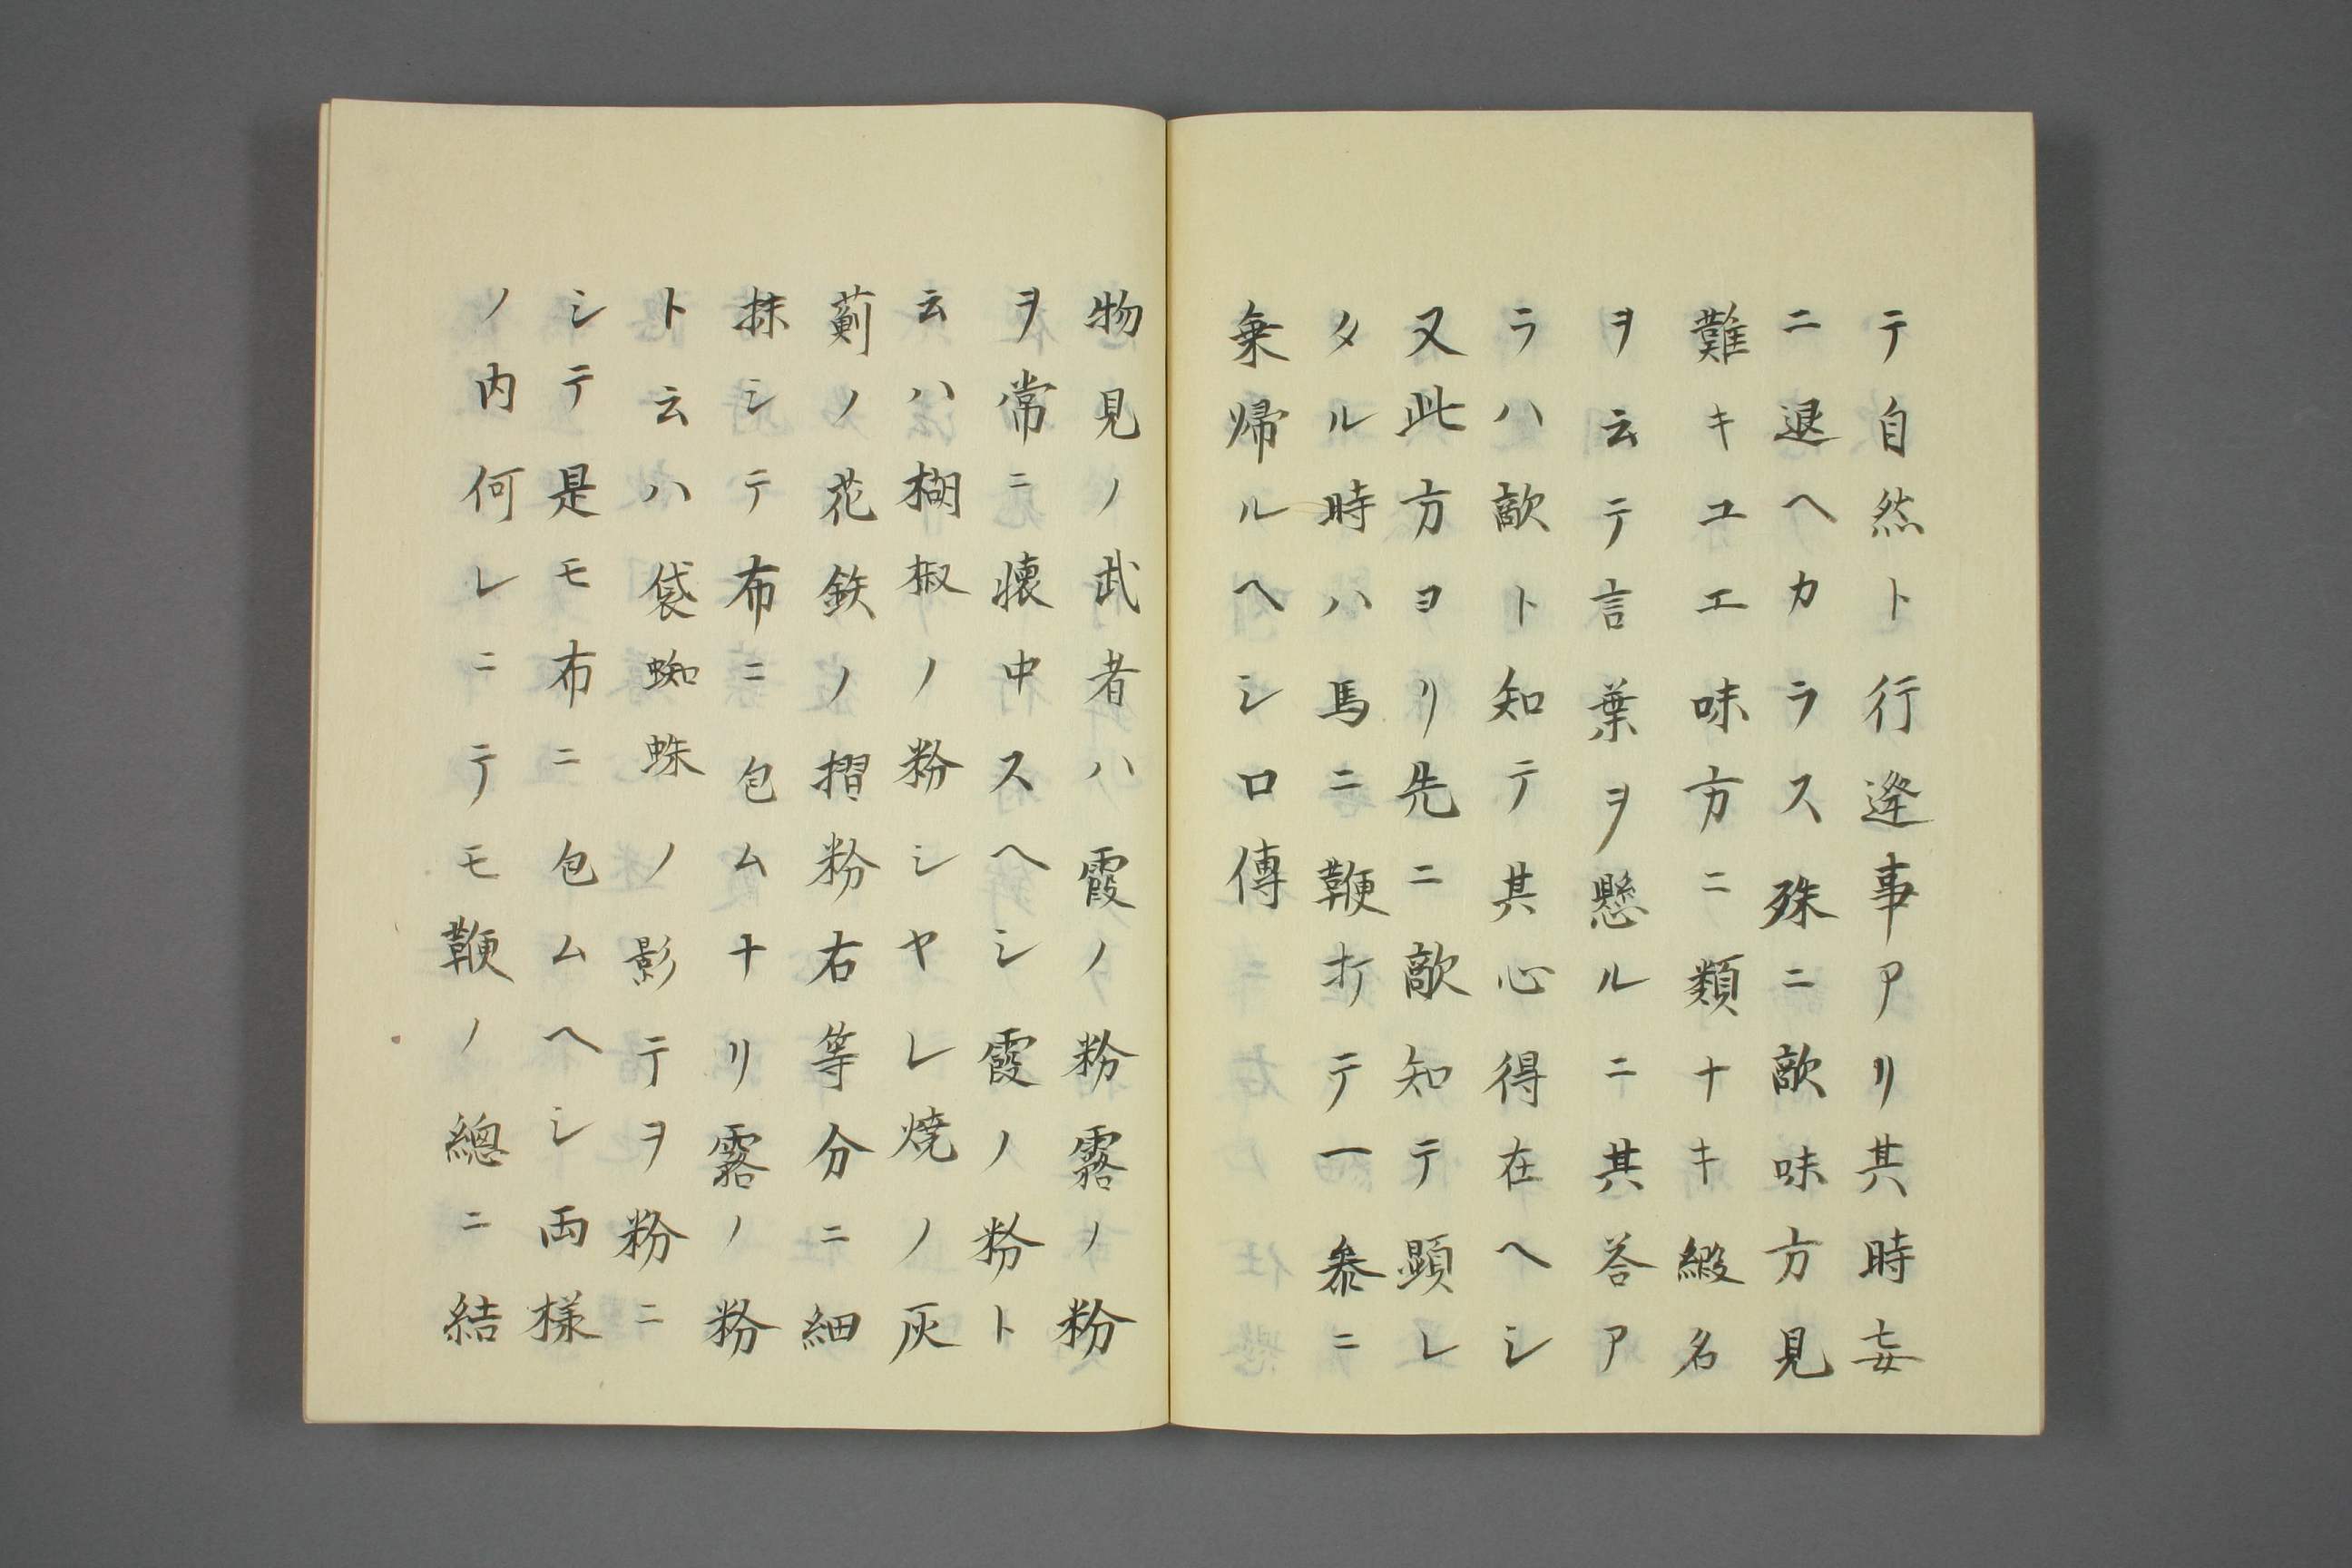 テ自然ト行逢事アリ其時妄
ニ退ヘカラス殊ニ敵味方見
難キユエ味方ニ類ナキ緞名
ヲ云テ言葉ヲ懸ルニ其答ア
ラハ敵ト知テ其心得在ヘシ
又此方ヨリ先ニ敵知テ顕レ
タル時ハ馬ニ鞭打テ一叅ニ
乗帰ルヘシ口傳
物見ノ武者ハ霞ノ粉露ノ粉
ヲ常ニ懐中スヘシ霞ノ粉ト
云ハ楜椒ノ粉シヤレ焼ノ灰
薊ノ花鉄ノ摺粉右等分ニ細
抹シテ布ニ包ムナリ露ノ粉
ト云ハ袋蜘蛛ノ影テヲ粉ニ
シテ是モ布ニ包ムヘシ両様
ノ内何レニテモ鞭ノ總ニ結